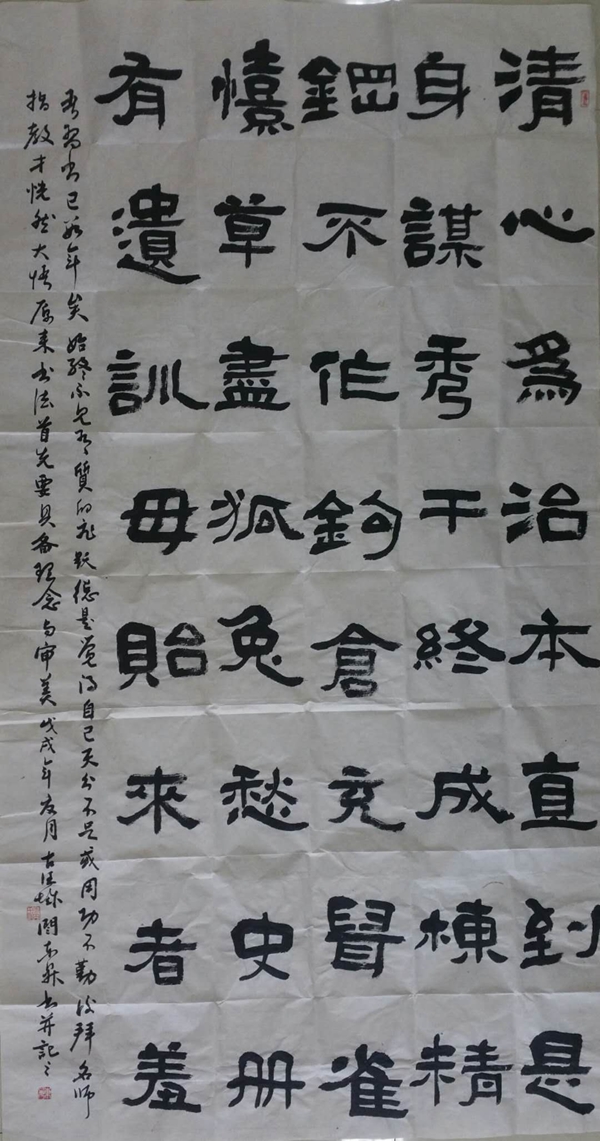 清心為治本直到是
身謀秀干終成棟精
鋼不作鈎倉充鼠雀
憘草盡狐兔愁史册
有遺訓毋貽來者羞
吾習书已數年矣始終不見有質的飛跃總是覺得自己天分不足或用功不勤後拜名師
指教才恍然大悟原来书法首先要具备理念与审美戊戌年夏月古书并記之